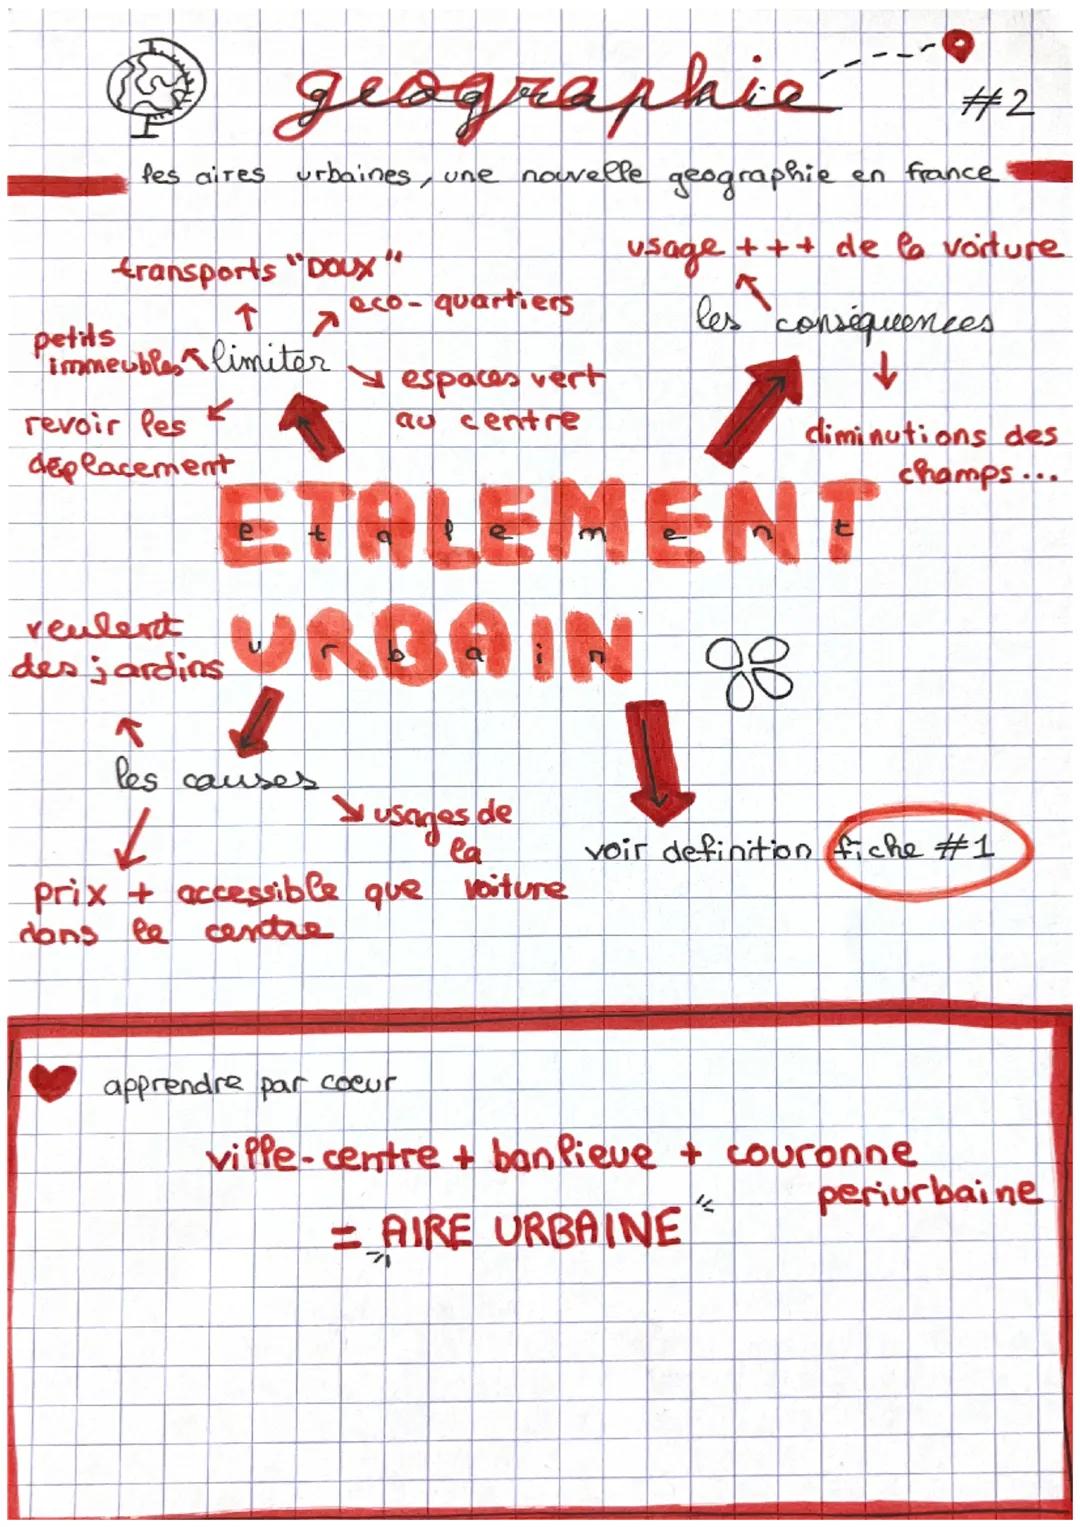 geographie
#2
les aires urbaines, une nouvelle geographie en france
transports "DOUX"
eco-quartiers
petits
immeubles
limiter
espaces vert
au centre
revoir les
deplacement
usage +++ de la voiture
les conséquences
diminutions des
champs...
ETALEMENT
e t a l e m e n t
URBAIN
u r b a i n
veulent
des jardins
les causes
usages de
la
voiture
prix + accessible que
dans le centre
voir definition fiche #1
apprendre par coeur
ville-centre + banlieue + couronne
periurbaine
= AIRE URBAINE